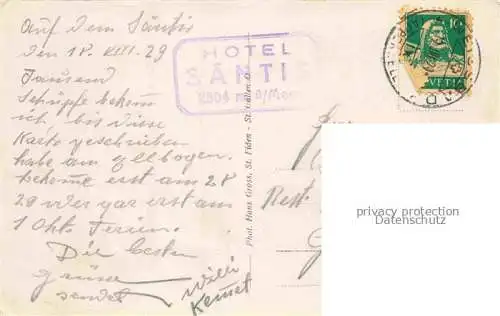 Auf dem Säntis
den 18. VIII. 29
Tausend
Schüpfe bekom
ich bis diese
Karte geschrieben
habe am Ellbogen
bekome erst am 28
29 wen gar erst am
1 Okt. Ferien.
Die besten
grüsse
sendet Willi
HOTEL
SÄNTIS
2504 m ü/Meer
Phot. Hans Gross, St. Fiden - St. Gallen O
10
HELVETIA
Rest.
privacy protection
Datenschutz